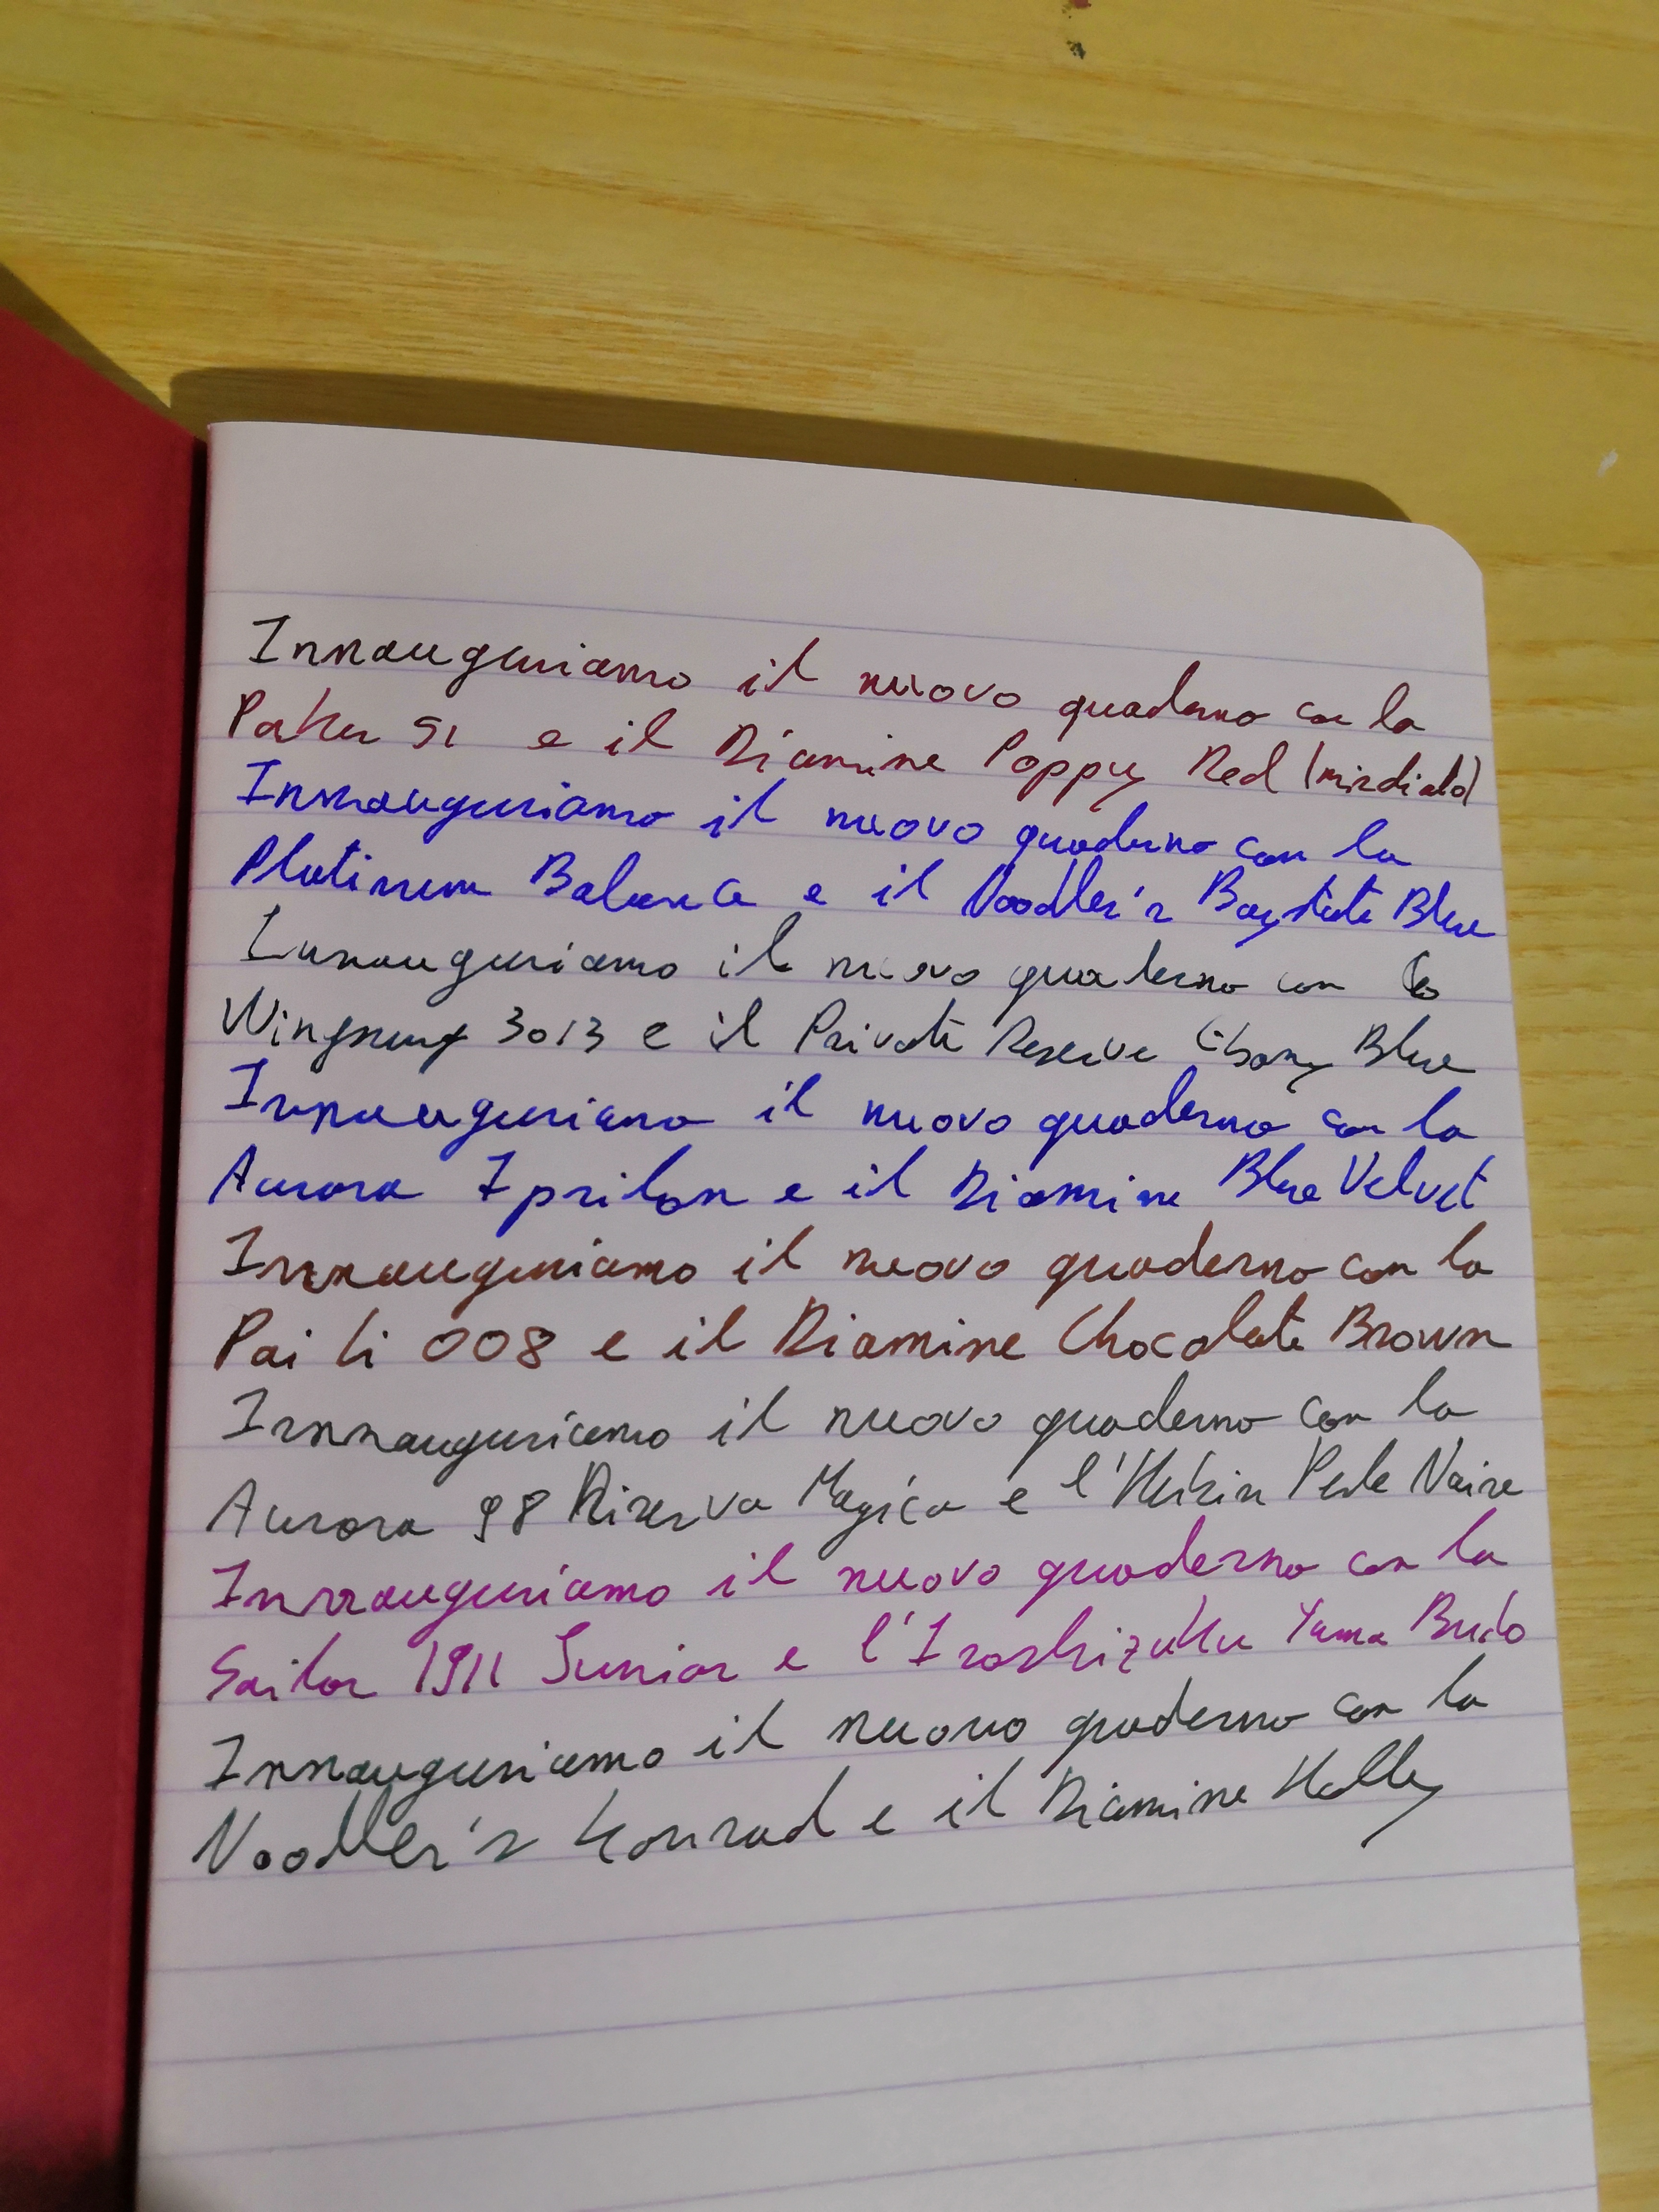 Innauguriamo il nuovo quaderno con la
Parker 51 e il Diamine Poppy Red
Innauguriamo il nuovo quaderno con la
Platinum Balance e il Noodler's Baystate Blue
Innauguriamo il nuovo quaderno con la
Wingsung 3013 e il Private Reserve Ebony Blue
Innauguriamo il nuovo quaderno con la
Aurora Ipsilon e il Diamine Blue Velvet
Innauguriamo il nuovo quaderno con la
Pai Li 008 e il Diamine Chocolate Brown
Innauguriamo il nuovo quaderno con la
Aurora 98 Riserva Magica e l'Herbin Perle Noire
Innauguriamo il nuovo quaderno con la
Sailor 1911 Junior e l'Iroshizuku Yama Budo
Innauguriamo il nuovo quaderno con la
Noodler's Konrad e il Diamine Holly